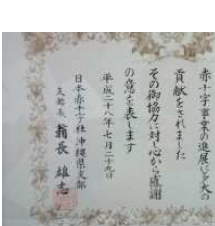 赤十字事業の進展に多大の
貢献をされました
その御協力に対し心から感謝
の意を表します
平成二十八年七月二十九日
日本赤十字社沖縄県支部
支部長 翁長雄志